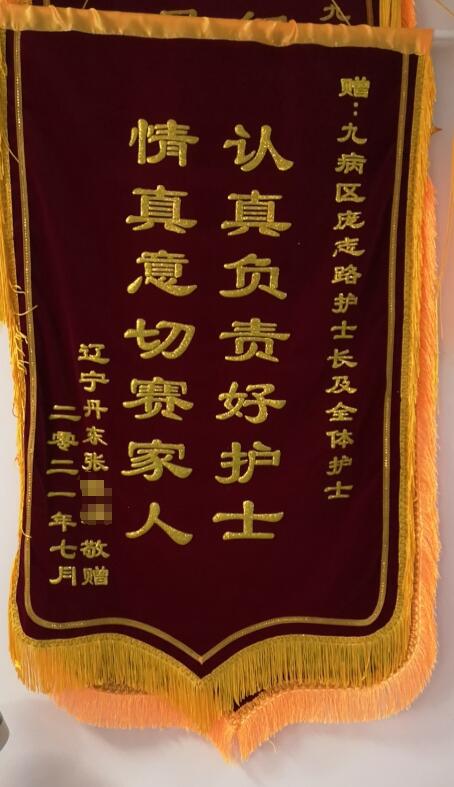 赠：九病区庞志路护士长及全体护士
认真负责好护士
情真意切赛家人
辽宁丹东张 敬赠
二零二一年七月